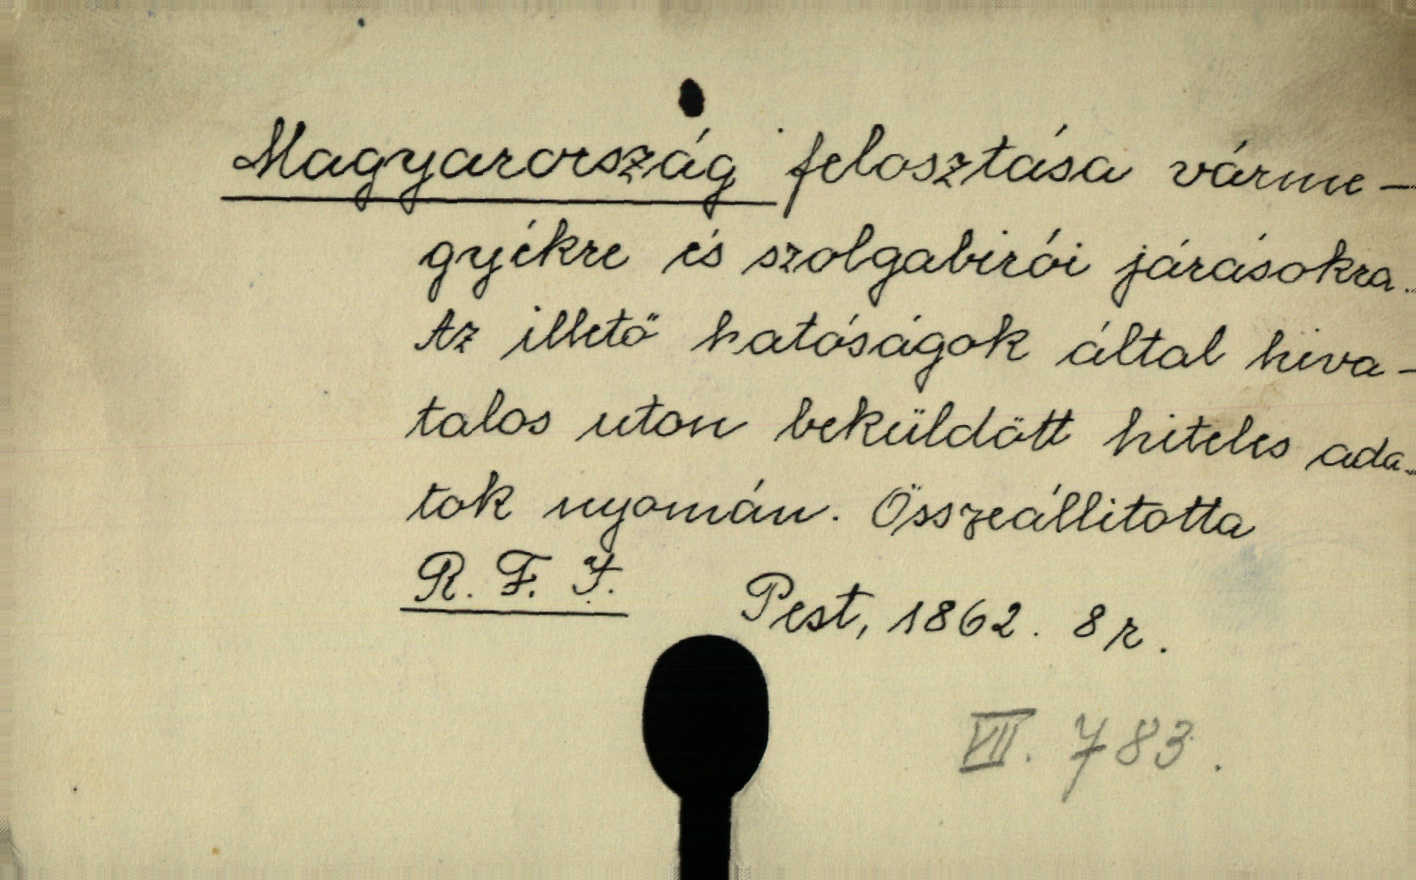 Magyarország felosztása várme-
gyékre és szolgabirói járásokra.
Az illető hatóságok által hiva-
talos uton beküldött hiteles ada-
tok nyomán. Összeállitotta
R. F. F. Pest, 1862. 8 r.
VII. 783.